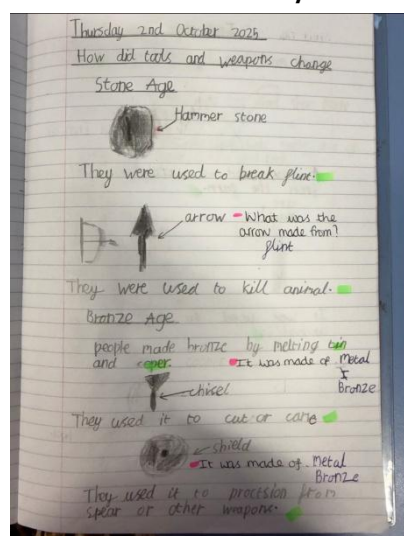 Thursday 2nd October 2025
How did tools and weapons change
Stone Age
Hammer stone
They were used to break flint.
arrow
What was the
arrow made from?
flint
They were used to kill animal.
Bronze Age
people made bronze by melting tin
and coper.
It was made of Metal
Bronze
chisel
They used it to cut or carve
shield
It was made of Metal
Bronze
They used it to procision from
spear or other weapons.